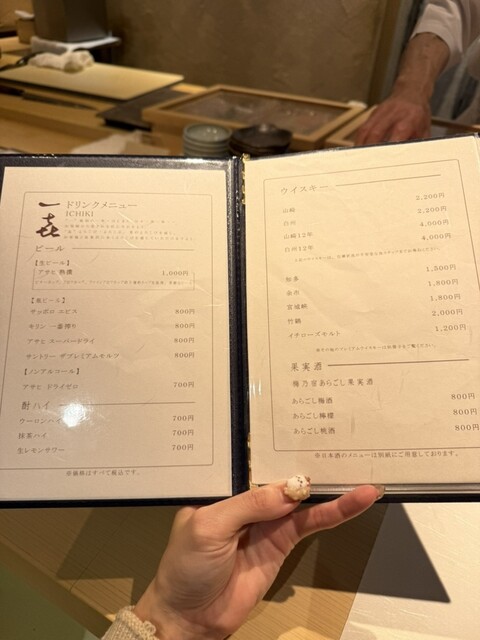 一㐂
ドリンクメニュー
ICHIKI
ビール
【生ビール】
アサヒ 熟撰 1,000円
【瓶ビール】
サッポロ エビス 800円
キリン 一番搾り 800円
アサヒ スーパードライ 800円
サントリー ザプレミアムモルツ 800円
【ノンアルコール】
アサヒ ドライゼロ 700円
酎ハイ
ウーロンハイ 700円
抹茶ハイ 700円
生レモンサワー 700円
※価格はすべて税込です。
ウイスキー
山崎 2,200円
白州 2,200円
山崎12年 4,000円
白州12年 4,000円
知多 1,500円
余市 1,800円
宮城峡 1,800円
竹鶴 2,000円
イチローズモルト 1,200円
果実酒
梅乃宿あらごし果実酒
あらごし梅酒 800円
あらごし檸檬 800円
あらごし桃酒 800円
※日本酒のメニューは別紙にご用意しております。